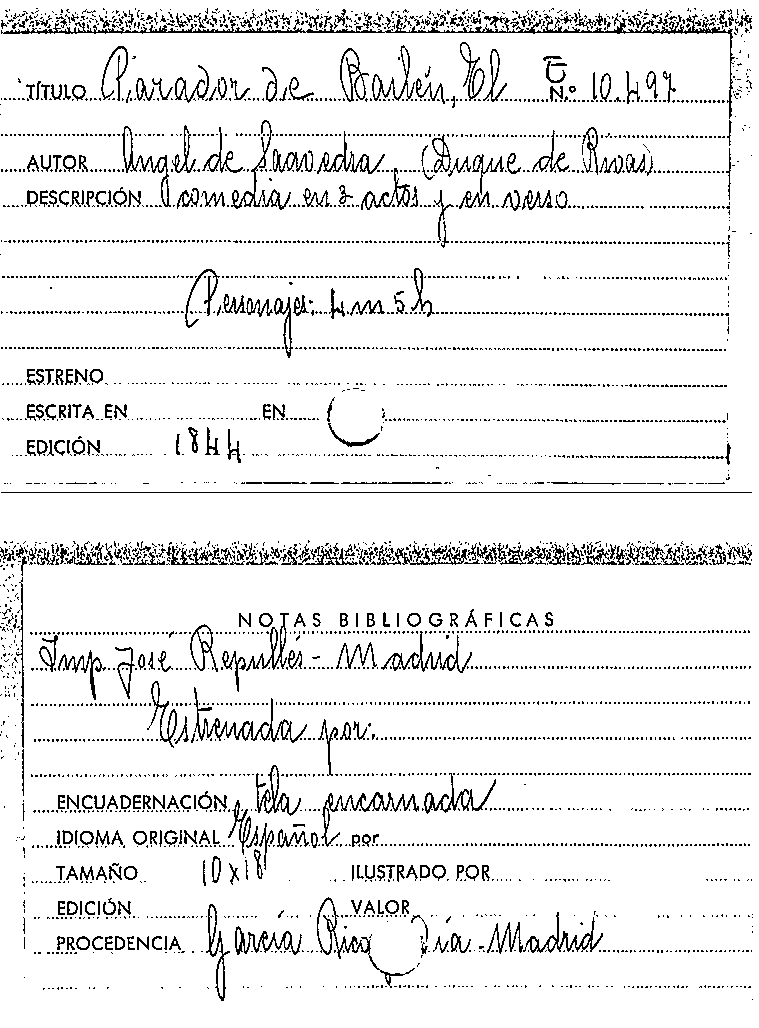 TÍTULO Parador de Bailén, El N.º 10.497
AUTOR Angel de Saavedra, (Duque de Rivas)
DESCRIPCIÓN comedia en 3 actos y en verso
Personajes: 4 m 5 h
ESTRENO
ESCRITA EN EN
EDICIÓN 1844
NOTAS BIBLIOGRÁFICAS
Imp José Repullés - Madrid
Estrenada por:
ENCUADERNACIÓN tela encarnada
IDIOMA ORIGINAL Español por
TAMAÑO 10 x 18 ILUSTRADO POR
EDICIÓN VALOR
PROCEDENCIA García Rico ía - Madrid